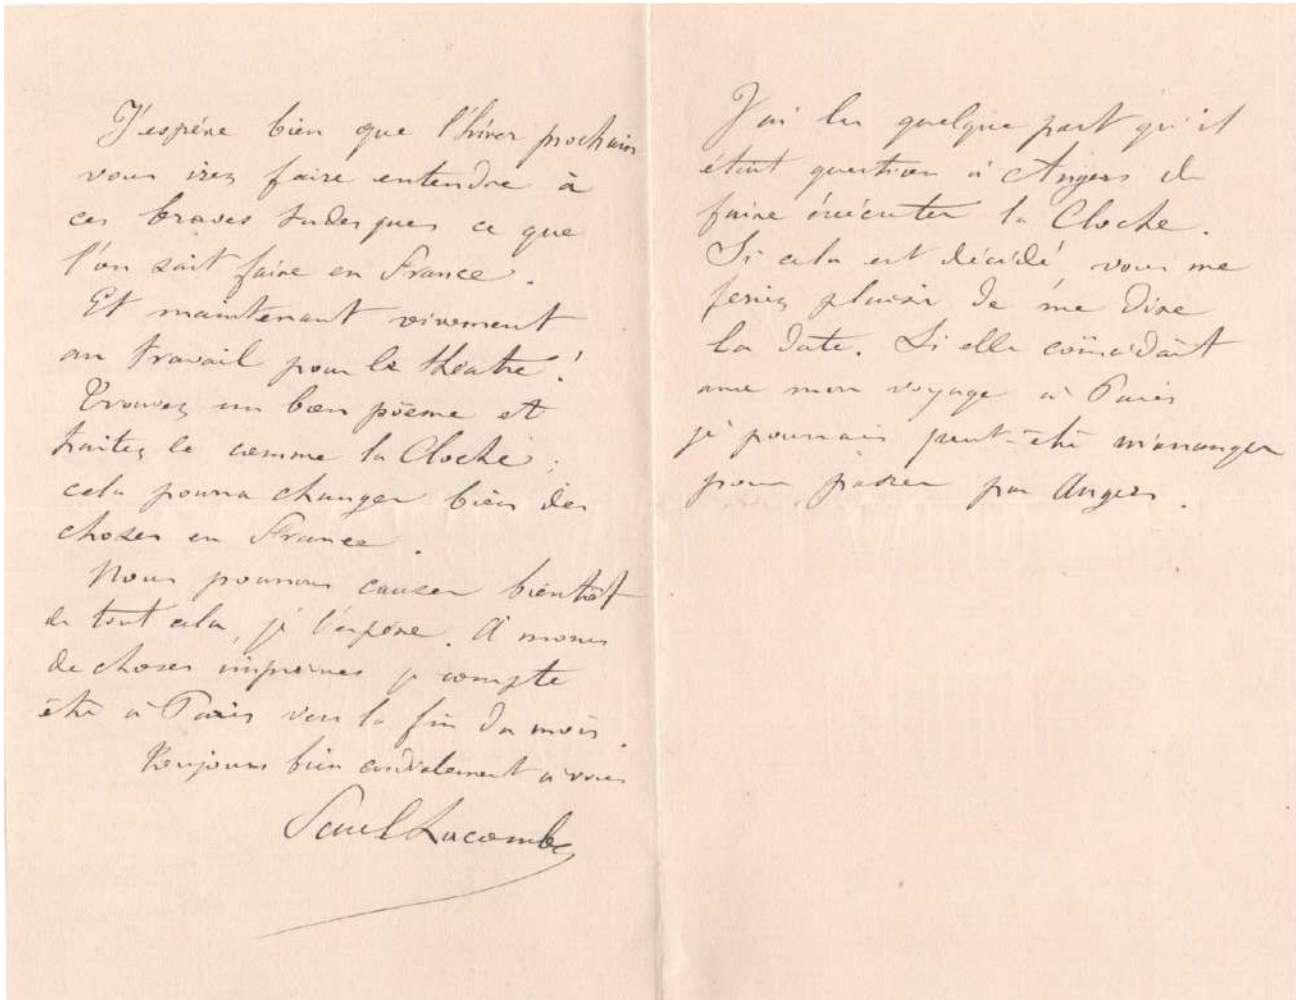 J'espère bien que l'hiver prochain
vous irez faire entendre à
ces braves tudesques ce que
l'on sait faire en France.
Et maintenant vivement
au travail pour le théatre !
Trouvez un bon poëme et
traitez le comme la Cloche ;
cela pourra changer bien des
choses en France.
Nous pourrons causer bientôt
de tout cela, je l'espère. A moins
de choses imprévues je compte
être à Paris vers la fin du mois.
Toujours bien cordialement à vous
Paul Lacombe
J'ai lu quelque part qu'il
était question à Angers de
faire exécuter la Cloche.
Si cela est décidé, vous me
feriez plaisir de me dire
la date. Si elle coïncidait
avec mon voyage à Paris
je pourrais peut-être m'arranger
pour passer par Angers.